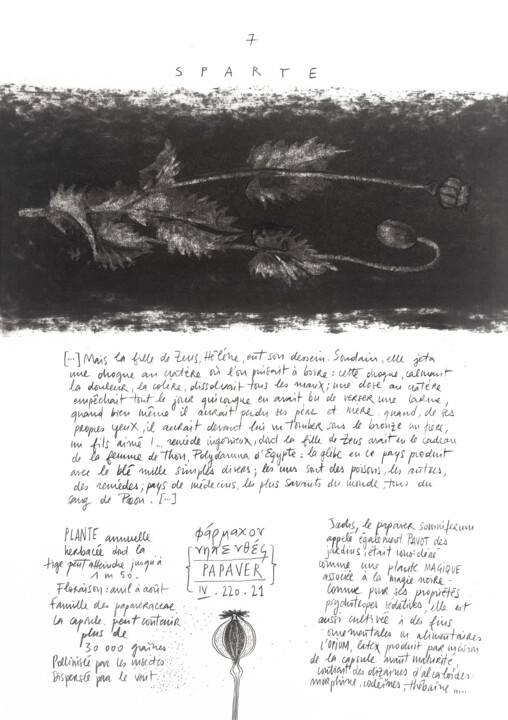 7
SPARTE
[...] Mais la fille de Zeus, Hélène, eut son dessein. Soudain, elle jeta
une drogue au cratère où l'on puisait à boire : cette drogue, calmant
la douleur, la colère, dissolvait tous les maux ; une dose au cratère
empêchait tout le jour quiconque en avait bu de verser une larme,
quand bien même il aurait perdu ses père et mère, quand, de ses
propres yeux, il aurait devant lui vu tomber sous le bronze un frère,
un fils aimé !... remède ingénieux, dont la fille de Zeus avait eu le cadeau
de la femme de Thon, Polydamna d'Egypte : la glèbe en ce pays produit
avec le blé mille simples divers ; les uns sont des poisons, les autres,
des remèdes ; pays de médecins, les plus savants du monde, tous du
sang de Paeon. [...]
PLANTE annuelle
herbacée dont la
tige peut atteindre jusqu'à
1 m 50.
Floraison : avril à août
famille des papaveraceae
La capsule peut contenir
plus de
30 000 graines
Pollinisée par les insectes
Dispersée par le vent
φάρμαχον
νηπενθές
PAPAVER
IV . 220. 21
Jadis, le papaver somniferum
appelé également PAVOT des
jardins, était considéré
comme une plante MAGIQUE
associée à la magie noire.
Connue pour ses propriétés
psychotropes sédatives, elle est
aussi cultivée à des fins
ornementales ou alimentaires
L'OPIUM, latex produit par incision
de la capsule avant maturité,
contient des dizaines d'alcaloïdes :
morphine, codéines, thébaïne .....